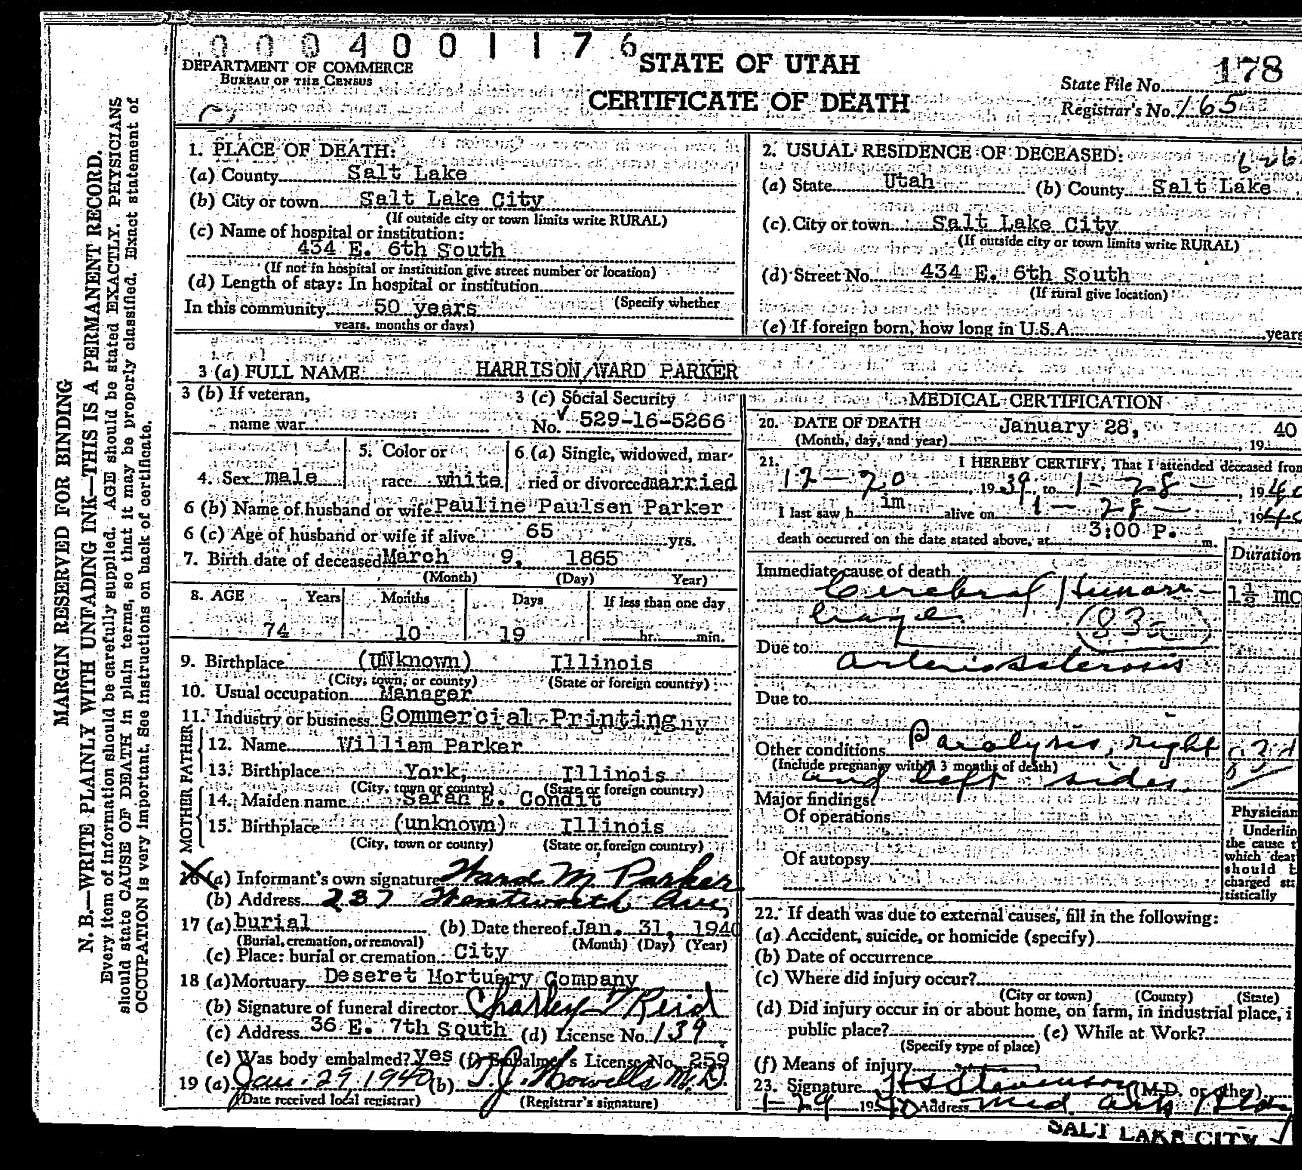 0004001176
DEPARTMENT OF COMMERCE
BUREAU OF THE CENSUS
STATE OF UTAH
CERTIFICATE OF DEATH
State File No. 178
Registrar's No. 165
MARGIN RESERVED FOR BINDING
N. B.—WRITE PLAINLY WITH UNFADING INK—THIS IS A PERMANENT RECORD.
Every item of information should be carefully supplied. AGE should be stated EXACTLY. PHYSICIANS
should state CAUSE OF DEATH in plain terms, so that it may be properly classified. Exact statement of
OCCUPATION is very important. See instructions on back of certificate.
1. PLACE OF DEATH:
(a) County Salt Lake
(b) City or town Salt Lake City
(If outside city or town limits write RURAL)
(c) Name of hospital or institution:
434 E. 6th South
(If not in hospital or institution give street number or location)
(d) Length of stay: In hospital or institution
(Specify whether
In this community 50 years
years, months or days)
2. USUAL RESIDENCE OF DECEASED:
(a) State Utah (b) County Salt Lake
(c) City or town Salt Lake City
(If outside city or town limits write RURAL)
(d) Street No. 434 E. 6th South
(If rural give location)
(e) If foreign born, how long in U.S.A. years
3 (a) FULL NAME HARRISON WARD PARKER
3 (b) If veteran,
name war
3 (c) Social Security
No. 529-16-5266
4. Sex male
5. Color or
race white
6 (a) Single, widowed, mar-
ried or divorced married
6 (b) Name of husband or wife Pauline Paulsen Parker
6 (c) Age of husband or wife if alive 65 yrs.
7. Birth date of deceased March 9, 1865
(Month) (Day) Year)
8. AGE Years Months Days If less than one day
74 10 19 hr. min.
9. Birthplace (UNknown) Illinois
(City, town, or county) (State or foreign country)
10. Usual occupation Manager
11. Industry or business Commercial Printing ny
FATHER
12. Name William Parker
13. Birthplace York, Illinois
(City, town or county) (State or foreign country)
MOTHER
14. Maiden name Sarah E. Condit
15. Birthplace (unknown) Illinois
(City, town or county) (State or foreign country)
16 (a) Informant's own signature Ward M Parker
(b) Address 237 Wentworth Ave,
17 (a) burial (b) Date thereof Jan. 31, 1940
(Burial, cremation, or removal) (Month) (Day) (Year)
(c) Place: burial or cremation City
18 (a) Mortuary Deseret Mortuary Company
(b) Signature of funeral director Charley T Reid
(c) Address 36 E. 7th South (d) License No. 139
(e) Was body embalmed? yes (f) Embalmer's License No. 259
19 (a) Jan. 29 1940 (b) T.J. Howells M.D.
(Date received local registrar) (Registrar's signature)
MEDICAL CERTIFICATION
20. DATE OF DEATH January 28, 19 40
(Month, day, and year)
21. I HEREBY CERTIFY, That I attended deceased from
12-20, 1939, to 1-28-, 1940
I last saw h im alive on 1-28-, 1940
death occurred on the date stated above, at 3:00 P. m.
Duration
Immediate cause of death
Cerebral Hemorr- 1½ mo
hage (83a)
Due to arteriosclerosis
Due to
Other conditions Paralysis, right
(Include pregnancy within 3 months of death)
and left sides.
Major findings:
Of operations
Of autopsy
Physician
Underlin
the cause t
which deat
should b
charged sta
tistically
22. If death was due to external causes, fill in the following:
(a) Accident, suicide, or homicide (specify)
(b) Date of occurrence
(c) Where did injury occur?
(City or town) (County) (State)
(d) Did injury occur in or about home, on farm, in industrial place, i
public place? (e) While at Work?
(Specify type of place)
(f) Means of injury
23. Signature H S Stevenson (M.D. or other)
1-29 1940 Address Med. Arts Bldg
SALT LAKE CITY